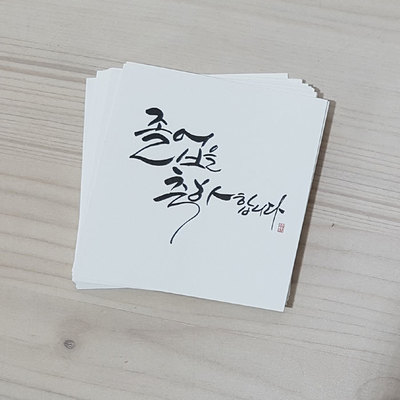 졸업을
축하합니다